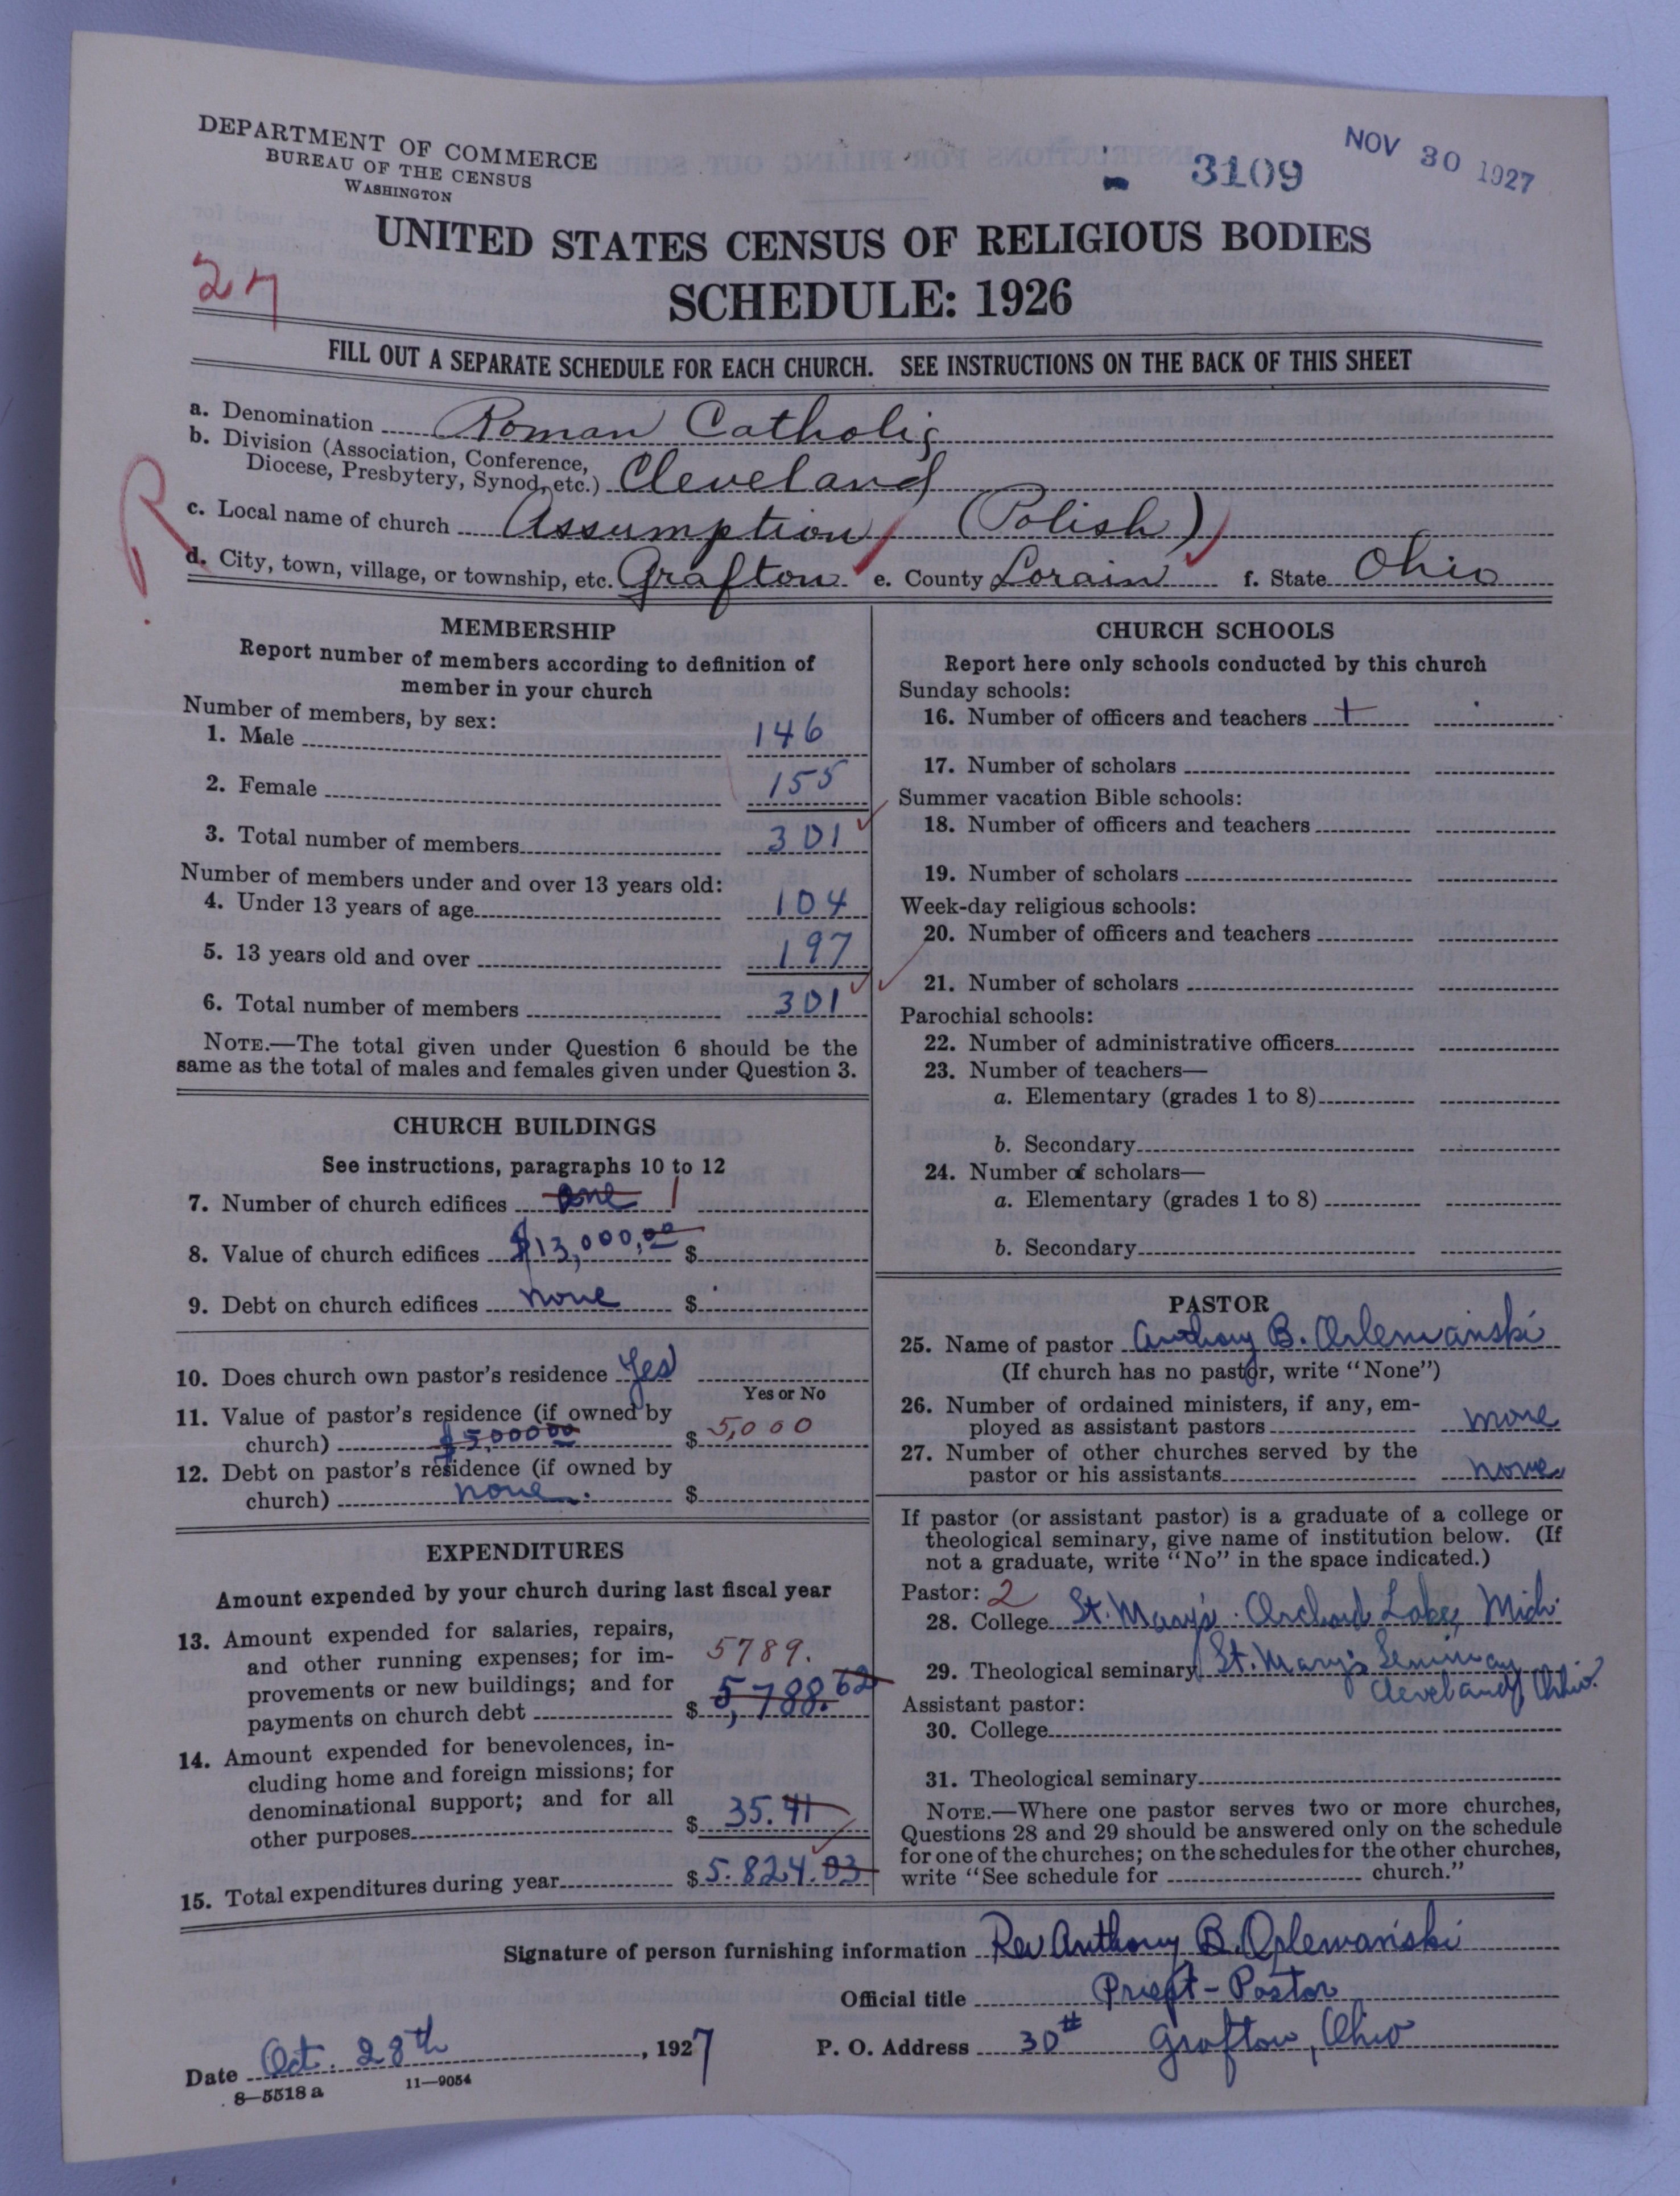 DEPARTMENT OF COMMERCE
BUREAU OF THE CENSUS
WASHINGTON
3109
NOV 30 1927
UNITED STATES CENSUS OF RELIGIOUS BODIES
SCHEDULE: 1926
27
FILL OUT A SEPARATE SCHEDULE FOR EACH CHURCH. SEE INSTRUCTIONS ON THE BACK OF THIS SHEET
a. Denomination Roman Catholic
b. Division (Association, Conference,
Diocese, Presbytery, Synod, etc.) Cleveland
c. Local name of church Assumption (Polish)
d. City, town, village, or township, etc. Grafton e. County Lorain f. State Ohio
R
MEMBERSHIP
Report number of members according to definition of
member in your church
Number of members, by sex:
1. Male 146
2. Female 155
3. Total number of members 301
Number of members under and over 13 years old:
4. Under 13 years of age 104
5. 13 years old and over 197
6. Total number of members 301
NOTE.—The total given under Question 6 should be the
same as the total of males and females given under Question 3.
CHURCH BUILDINGS
See instructions, paragraphs 10 to 12
7. Number of church edifices one 1
8. Value of church edifices $13,000.00 $
9. Debt on church edifices none $
10. Does church own pastor's residence Yes
Yes or No
11. Value of pastor's residence (if owned by
church) $5,000.00 $ 5,000
12. Debt on pastor's residence (if owned by
church) none. $
EXPENDITURES
Amount expended by your church during last fiscal year
13. Amount expended for salaries, repairs,
and other running expenses; for im-
provements or new buildings; and for
payments on church debt $ 5,788.62
5789.
14. Amount expended for benevolences, in-
cluding home and foreign missions; for
denominational support; and for all
other purposes $ 35.41
15. Total expenditures during year $ 5.824.03
CHURCH SCHOOLS
Report here only schools conducted by this church
Sunday schools:
16. Number of officers and teachers
17. Number of scholars
Summer vacation Bible schools:
18. Number of officers and teachers
19. Number of scholars
Week-day religious schools:
20. Number of officers and teachers
21. Number of scholars
Parochial schools:
22. Number of administrative officers
23. Number of teachers—
a. Elementary (grades 1 to 8)
b. Secondary
24. Number of scholars—
a. Elementary (grades 1 to 8)
b. Secondary
PASTOR
25. Name of pastor Anthony B. Orlemański
(If church has no pastor, write "None")
26. Number of ordained ministers, if any, em-
ployed as assistant pastors none
27. Number of other churches served by the
pastor or his assistants none
If pastor (or assistant pastor) is a graduate of a college or
theological seminary, give name of institution below. (If
not a graduate, write "No" in the space indicated.)
Pastor: 2
28. College St. Mary's. Orchard Lake, Mich.
29. Theological seminary St. Mary's Seminary
Cleveland, Ohio.
Assistant pastor:
30. College
31. Theological seminary
NOTE.—Where one pastor serves two or more churches,
Questions 28 and 29 should be answered only on the schedule
for one of the churches; on the schedules for the other churches,
write "See schedule for church."
Signature of person furnishing information Rev Anthony B. Orlemański
Official title Priest - Pastor
Date Oct. 28th, 1927 P. O. Address 30# Grafton, Ohio
8—5518 a 11—9054